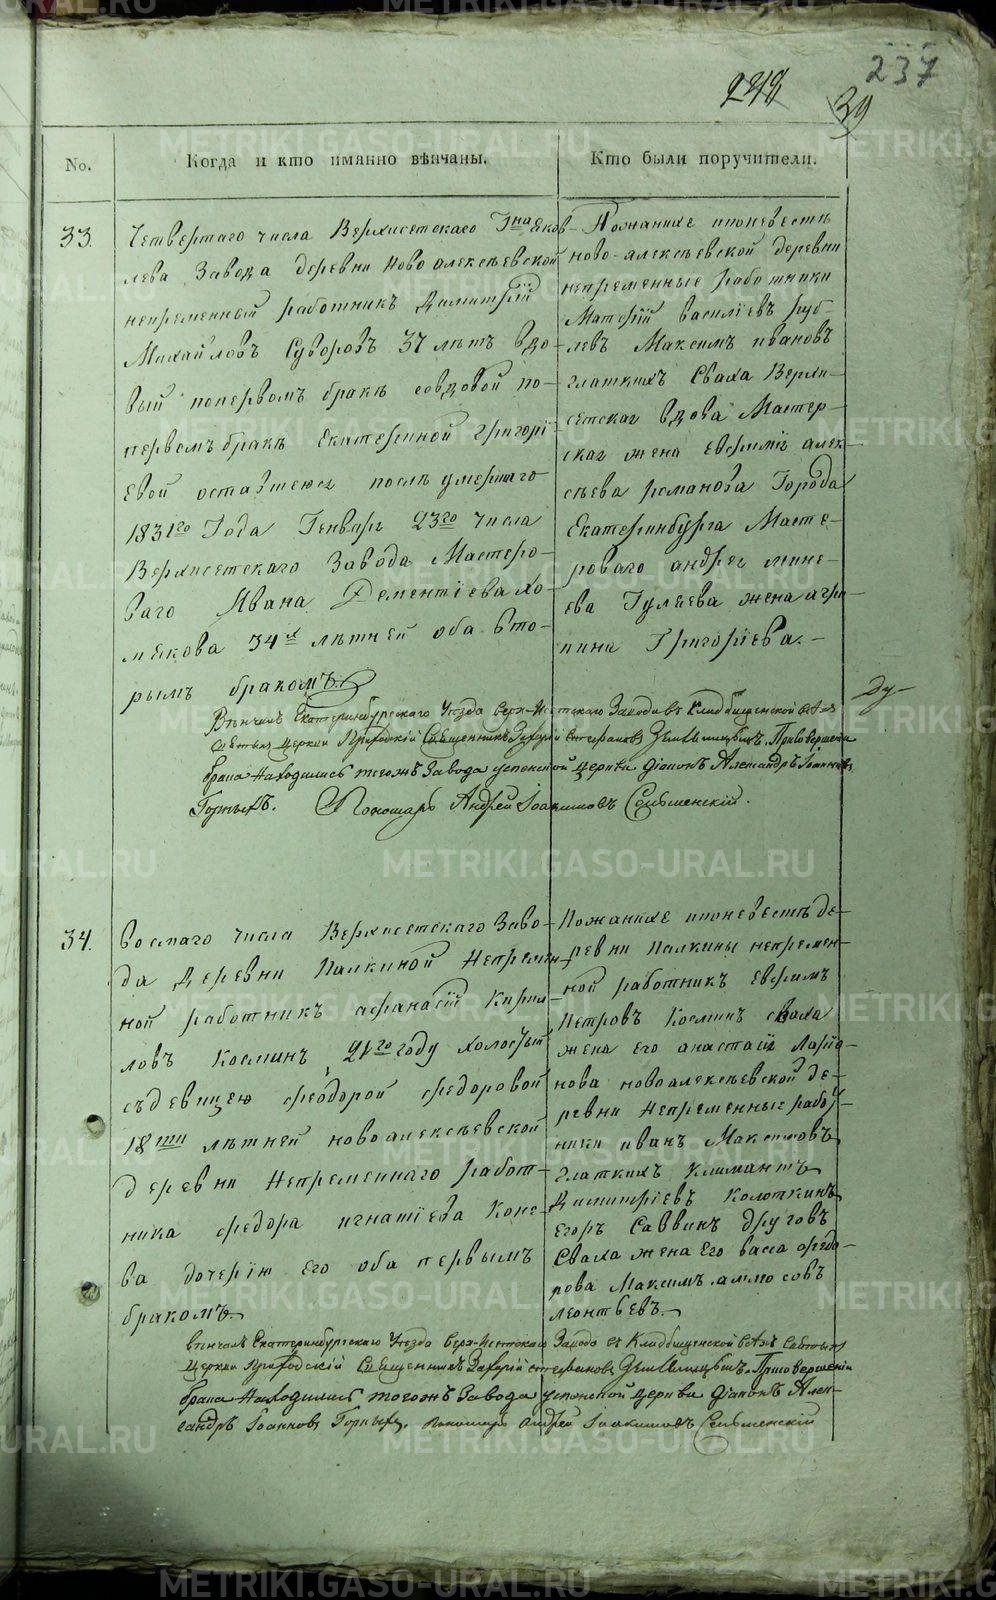 237
248
39
No.
Когда и кто имянно вѣнчаны.
Кто были поручители.
33.
Четвертаго числа Верхисетскаго Гна Яков-
лева Завода деревни Ново алексѣевской
непременный работникъ Димитрїй
Михайловъ Суворовъ 37 лѣтъ вдо-
вый попервомъ бракѣ совдовой по-
первомъ бракѣ Екатериной Григорї
евой оставшеюся послѣ умершаго
1831го Года Генваря 23го числа
Верхисетскаго Завода Мастеро-
ваго Ивана Дементїева Хо-
мякова 34х лѣтней оба вто-
рымъ бракомъ.
Пожанихе ипоневесте
ново-алексѣевской деревни
непременные работники
Матфїй василїевъ руб-
левъ Максимъ ивановъ
глаткихъ Сваха Верхи-
сетская вдова Мастер-
ская жена евфимїя алек-
сѣева романова Города
Екатеринбурга Масте-
роваго андрея мине-
ева Гуляева жена агри-
пина Григорїева.-
Вѣнчалъ Екатеринбургскаго Уезда Верх-Исетскаго Завода въ Кладбищенской Всѣхъ
Святыхъ Церкви Приходскїй Священникъ Захарїй Стефановъ . При Совершенїи
брака Находились тогожъ Завода успенской церкви Дїаконъ Александръ Iоанновъ
Горныхъ. Пономарь Андрей Iоакимовъ
34.
Восмаго числа Верхисетскаго Заво-
да Деревни Палкиной Непремен
ной работникъ афанасїй Кирил
ловъ Косминъ 21го году холостый
съдевицею феодорой федоровой
18ти лѣтней новоалексѣевской
деревни Непременнаго работ-
ника федора игнатїева Коне-
ва дочерїю его оба первымъ
бракомъ.
Пожанихе ипоневесте де-
ревни Палкины непремен-
ной работникъ евфимъ
Петровъ Косминъ сваха
жена его анастасїя Ларїо-
нова новоалексѣевской де-
ревни Непременные рабо
ники иванъ Максимовъ
глаткихъ Климантъ
Димитрїевъ Колоткинъ
Егоръ Саввинъ друговъ
Сваха жена его васа федо-
рова Максимъ аммосовъ
леонтьевъ.
вѣнчалъ Екатеринбургскаго Уезда Верх-Исетскаго Завода въ Кладбищенской Всѣхъ Святыхъ
Церкви Приходскїй Священникъ Захарїй Стефановъ . При Совершенїи
брака Находились тогожъ Завода успенской церкви Дїаконъ Алек-
сандръ Iоанновъ Горныхъ. Пономарь Андрей Iоакимовъ
METRIKI.GASO-URAL.RU